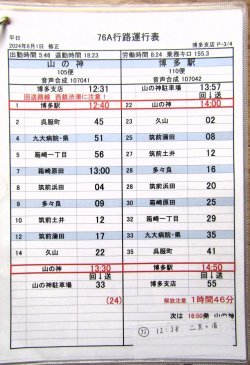 平日
76A行路運行表
2024年8月1日 修正
博多支店 P-3/4
出勤時間 5:46 退勤時間 18:23
労働時間 6:24 乗務キロ 155.3
山の神
博多駅
105便
110便
音声合成 107041
音声合成 107042
博多支店 12:31
山の神駐車場 13:57
回送路線 西鉄渋滞に注意!
回↓送
1 博多駅 12:40
22 山の神 14:00
4 呉服町 45
23 久山 02
4 九大病院・県 51
25 筑前蒲田 07
5 箱崎一丁目 56
27 筑前土井 12
7 箱崎原田 13:00
28 多々良 16
8 筑前浜田 08
29 筑前浜田 20
9 多々良 09
30 箱崎原田 25
10 筑前土井 12
32 箱崎一丁目 28
12 筑前蒲田 17
33 九大病院・県 35
14 久山 22
35 呉服町 41
山の神 13:30
博多駅 14:50
回↓送
回↓送
山の神駐車場 33
博多支店 55
(24)
解放注意 1時間46分
次は 16:50発 山の神
12:38